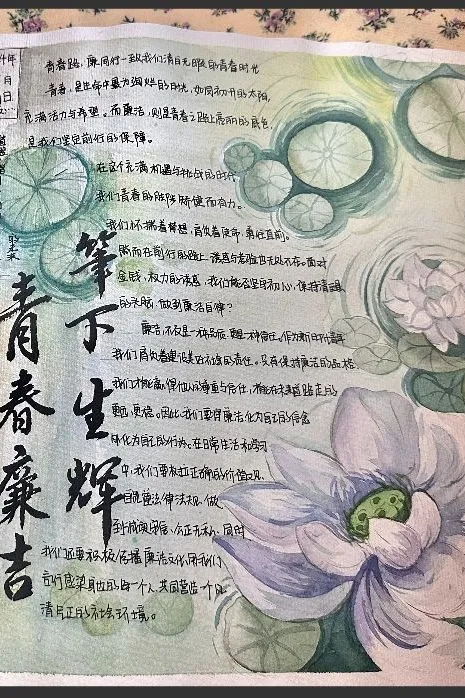 青春路，廉同行—致我们清白无瑕的青春时光
青春，是生命中最为绚烂的时光，如同初升的太阳，
充满活力与希望。而廉洁，则是青春之路上亮丽的底色，
是我们坚定前行的保障。
在这个充满机遇与挑战的时代，
我们青春的胜阵矫健而有力。
我们怀揣着梦想，肩负着使命，勇往直前。
然而在前行的路上，诱惑与考验也无处不在。面对
金钱、权力的诱惑，我们能否坚守初心，保持青春
的纯粹，做到廉洁自律？
廉洁，不仅是一种品质，更是一种责任。作为新时代青年
我们肩负着建设美好未来的责任。只有保持廉洁的品格，
我们才能赢得他人的尊重与信任，才能在未来道路走的
更远，更稳。因此，我们要将廉洁化为自己的信念
外化为自己的行为。在日常生活和学习
中，我们要树立正确的价值观，
自觉遵法律法规，做
到诚实守信，公正无私，同时
我们还要积极传播廉洁文化，用我们
言行感染身边的每一个人，共同营造一个风
清月正的社会环境。
笔下生辉
青春廉洁